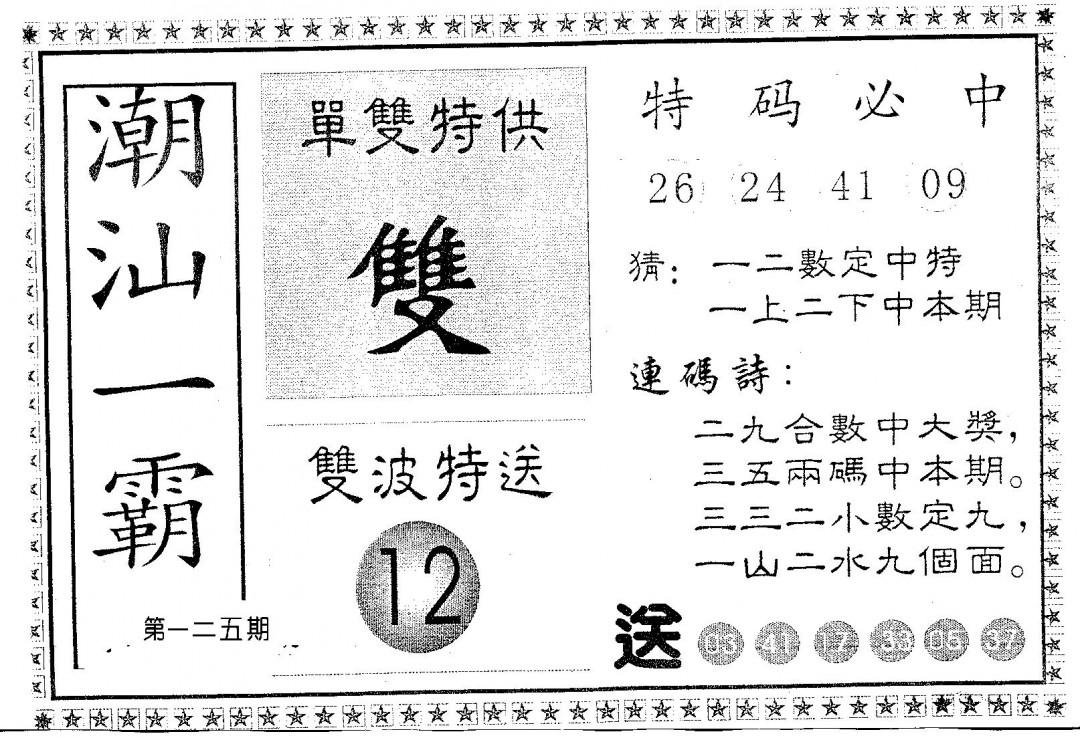 潮汕一霸
第一二五期
單雙特供
雙
雙波特送
12
特码必中
26 24 41 09
猜：一二數定中特
一上二下中本期
連碼詩：
二九合數中大獎，
三五兩碼中本期。
三三二小數定九，
一山二水九個面。
送 03 41 17 33 05 37